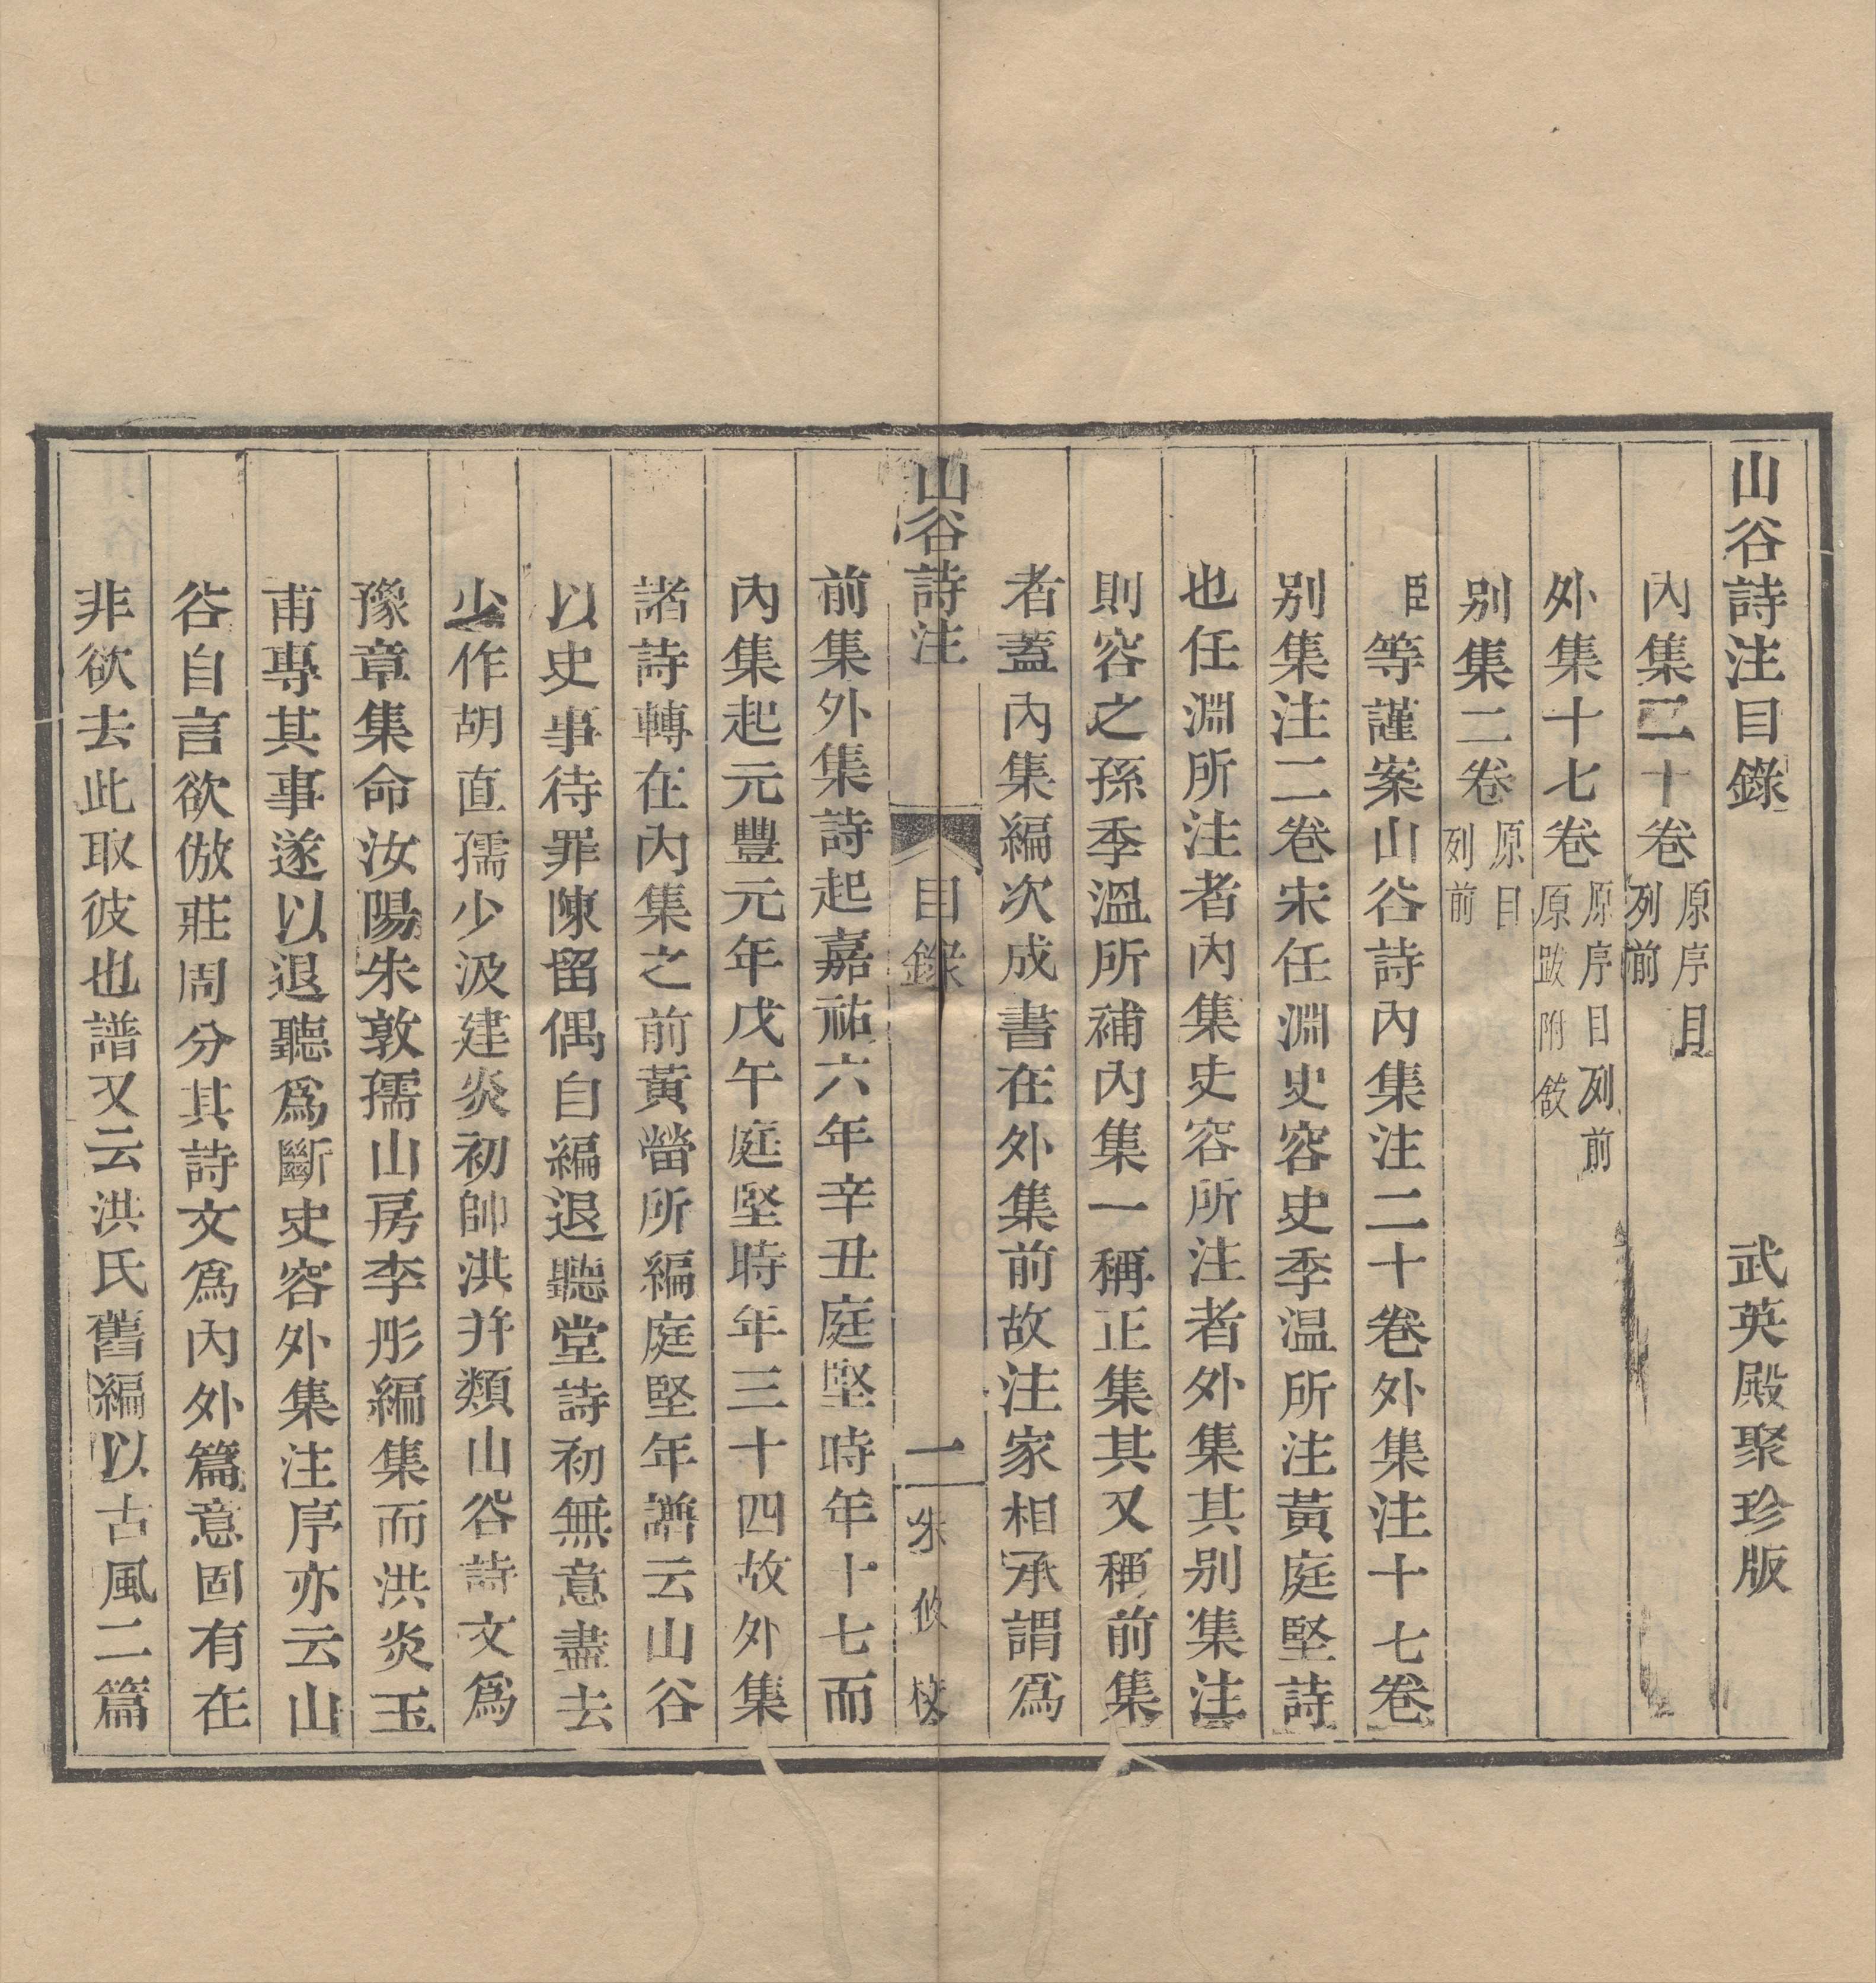 山谷詩注目錄　武英殿聚珍版
內集二十卷原序目列前
外集十七卷原序目列前原跋附敘
別集二卷原目列前
臣等謹案山谷詩內集注二十卷外集注十七卷
別集注二卷宋任淵史容史季温所注黃庭堅詩
也任淵所注者內集史容所注者外集其別集注
則容之孫季溫所補內集一稱正集其又稱前集
者蓋內集編次成書在外集前故注家相承謂爲
山谷詩注　目錄　一　朱攸校
前集外集詩起嘉祐六年辛丑庭堅時年十七而
內集起元豐元年戊午庭堅時年三十四故外集
諸詩轉在內集之前黃㽦所編庭堅年譜云山谷
以史事待罪陳留偶自編退聽堂詩初無意盡去
少作胡直孺少汲建炎初帥洪并類山谷詩文爲
豫章集命汝陽朱敦孺山房李彤編集而洪炎玉
甫專其事遂以退聽爲斷史容外集注序亦云山
谷自言欲倣莊周分其詩文爲內外篇意固有在
非欲去此取彼也譜又云洪氏舊編以古風二篇